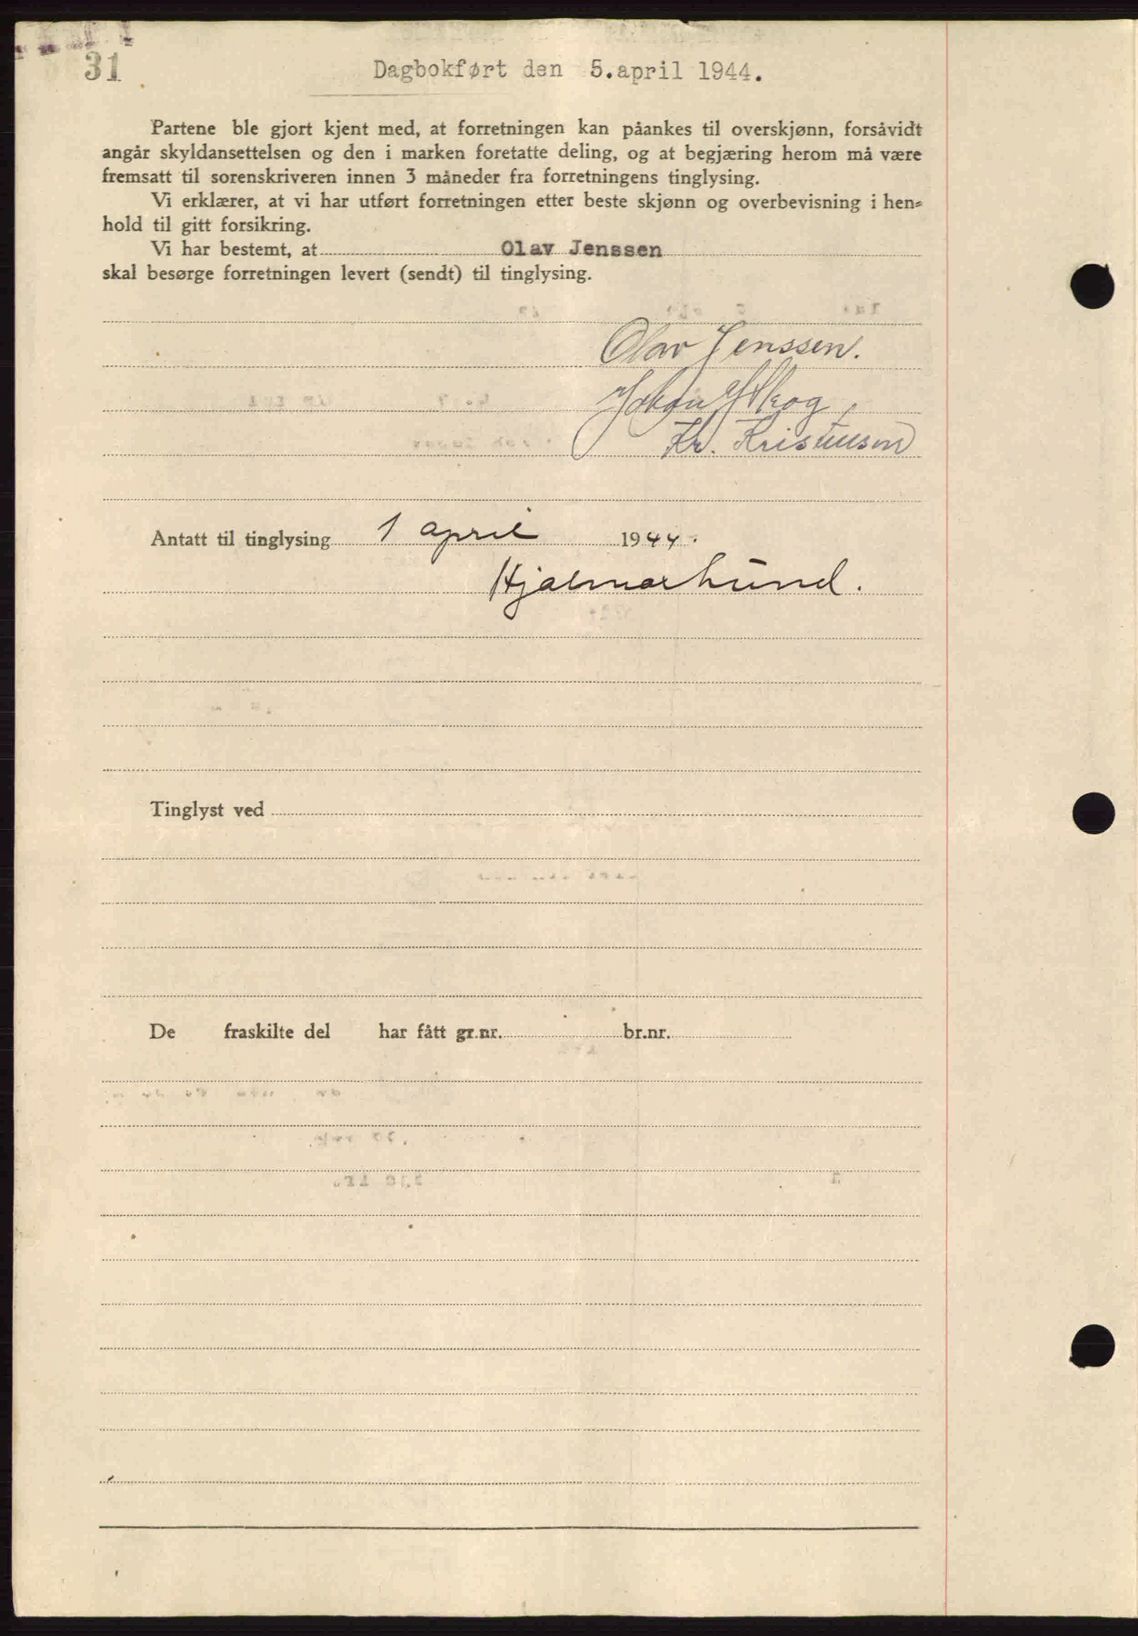 31
Dagbokført den 5.april 1944.
Partene ble gjort kjent med, at forretningen kan påankes til overskjønn, forsåvidt
angår skyldansettelsen og den i marken foretatte deling, og at begjæring herom må være
fremsatt til sorenskriveren innen 3 måneder fra forretningens tinglysing.
Vi erklærer, at vi har utført forretningen etter beste skjønn og overbevisning i hen-
hold til gitt forsikring.
Vi har bestemt, at Olav Jenssen
skal besørge forretningen levert (sendt) til tinglysing.
Olav Jenssen.
Johan Skog,
Kr. Kristensen
Antatt til tinglysing 1 april 1944.
Hjalmar Lund.
Tinglyst ved
De fraskilte del har fått gr.nr. br.nr.